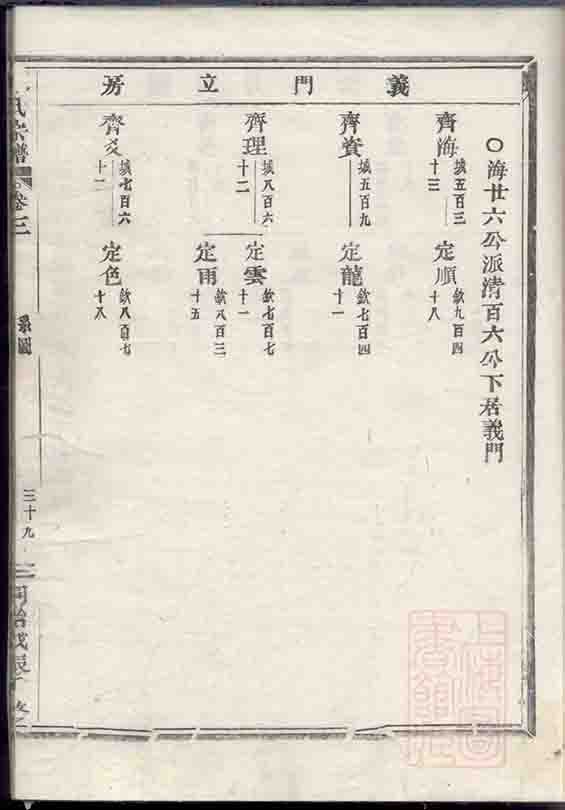 義門立房
○海廿六公派清百六公下居義門
齊海
城五百三
十三
定順
欽九百四
十八
齊資
城五百九
定龍
欽七百四
十一
齊理
城八百六
十二
定雲
欽七百七
十一
定雨
欽八百三
十五
齊
城七百六
十二
定色
欽八百七
十八
氏宗譜
卷三
系圖
三十九
同治戊辰
上海圖書館藏